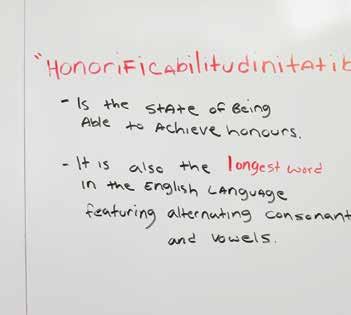 "Honorificabilitudinitatib
- Is the state of Being
Able to Achieve honours.
- It is also the longest word
in the English Language
featuring alternating consonant
and vowels.